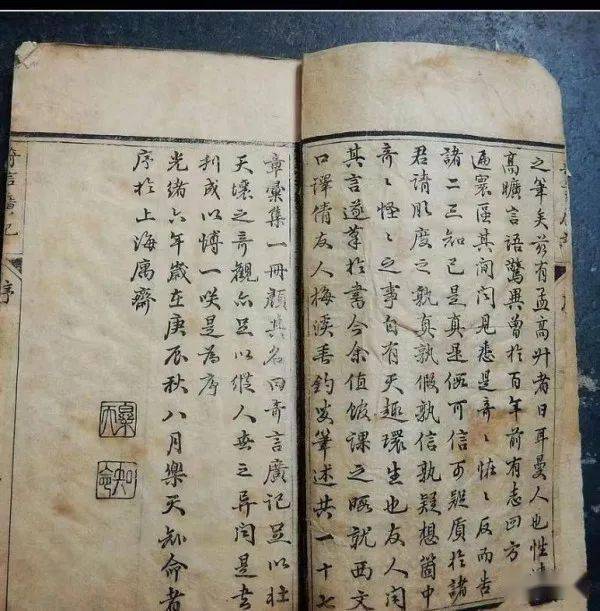 之筆矣茲有孟高升者日耳曼人也性
高曠言語驚異曾於百年前有志四方
遍寰區其間聞見悉是奇〻怪〻反而告
諸二三知己是真是假可信可疑質於諸
君請忖度之孰真孰假孰信孰疑想箇中
奇〻怪〻之事自有天趣環生也友人聞
其言遂筆於書今余值餘課之暇就西文
口譯倩友人梅溪垂釣叟筆述共一十七
章彙集一冊顏其名曰奇言廣記足以壯
天壤之奇觀亦足以縱人世之異聞是書
刋成以博一咲是為序
光緒六年歲在庚辰秋八月樂天知命者
序於上海寓齋
樂天
知命
奇言廣記 序